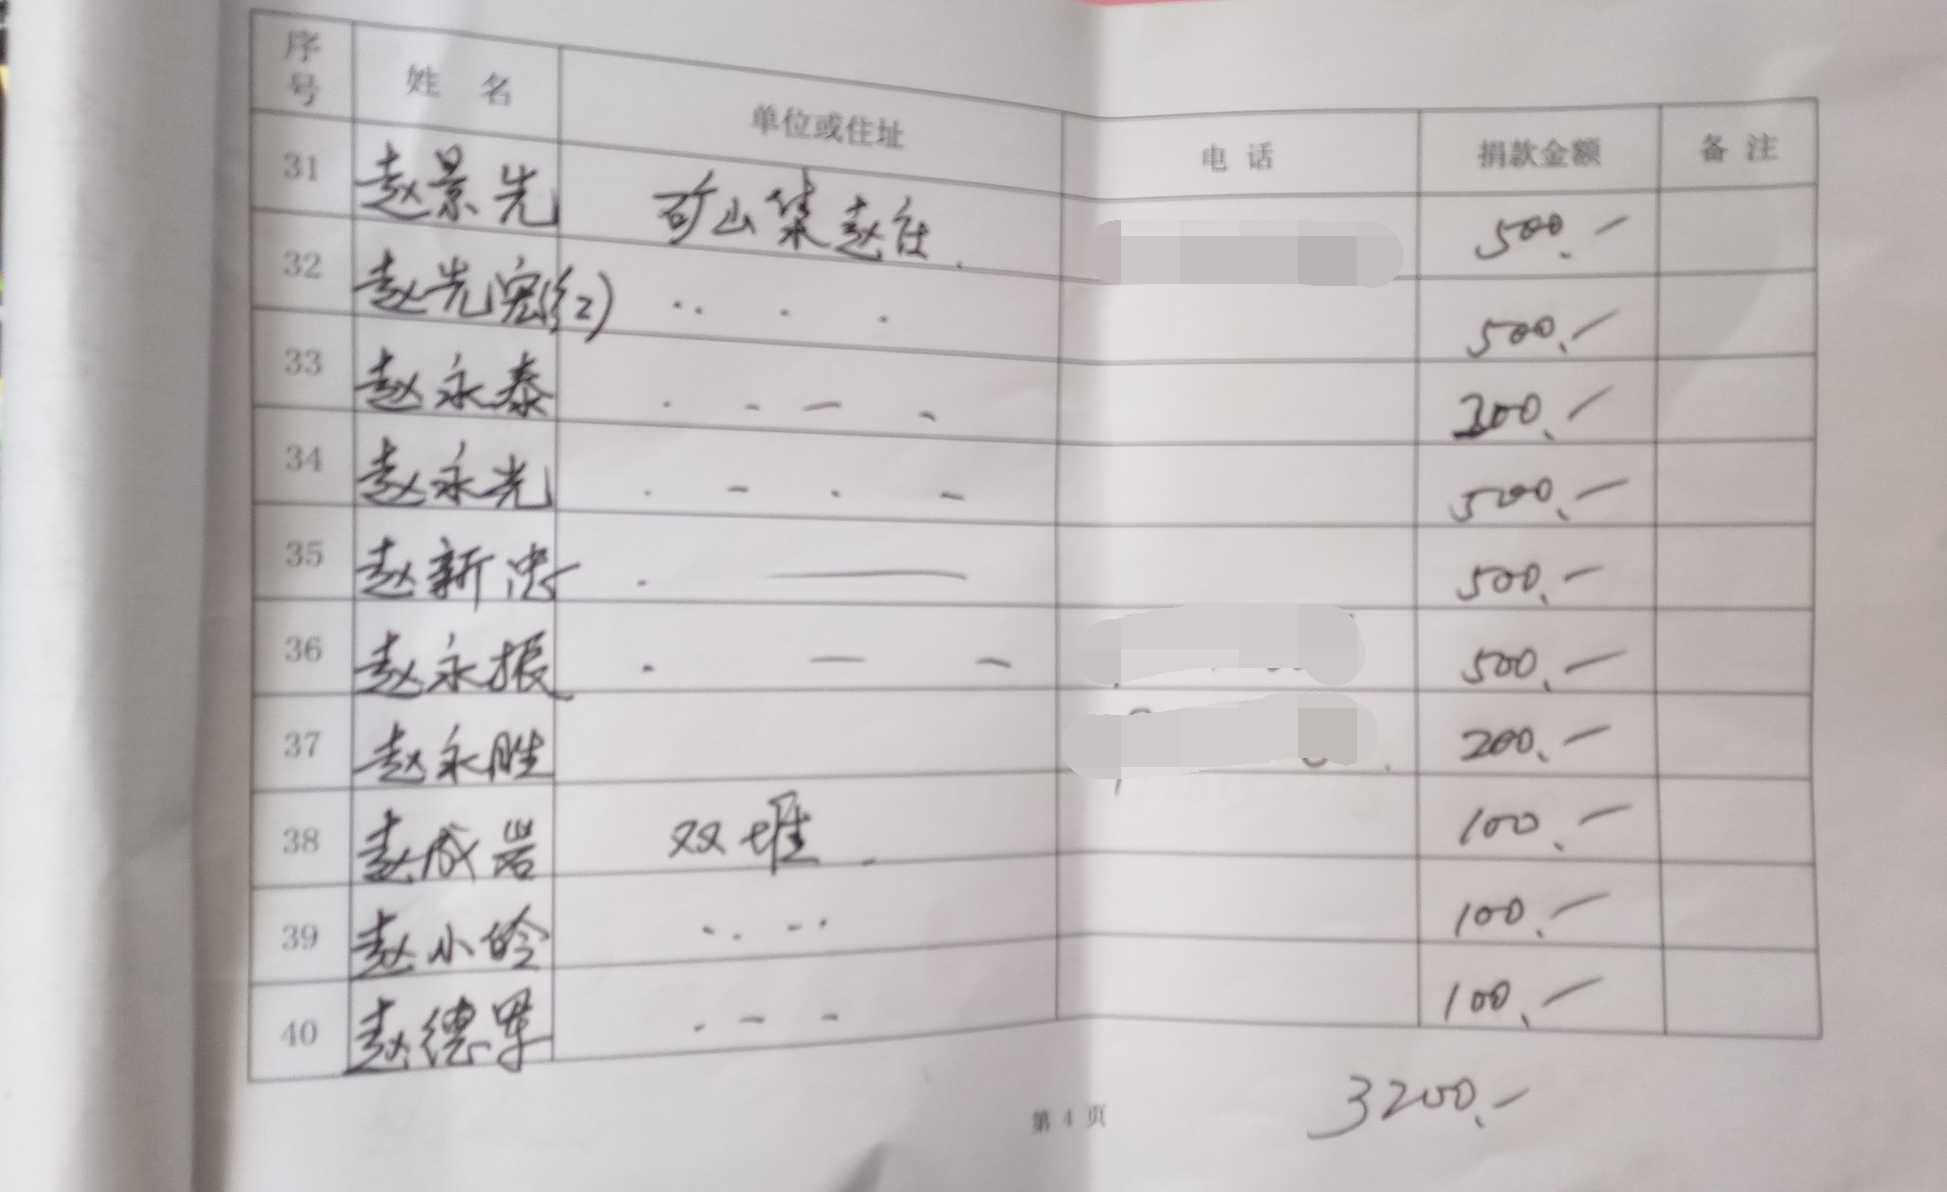 序号 姓 名 单位或住址 电 话 捐款金额 备 注
31 赵景先 矿山集赵庄. 500.一
32 赵先宏(红) 500.一
33 赵永泰 200.一
34 赵永光 500.一
35 赵新忠 500.一
36 赵永振 500.一
37 赵永胜 200.一
38 赵成岩 双堆 100.一
39 赵小 100.一
40 赵德军 100.一
第 4 页
3200.一